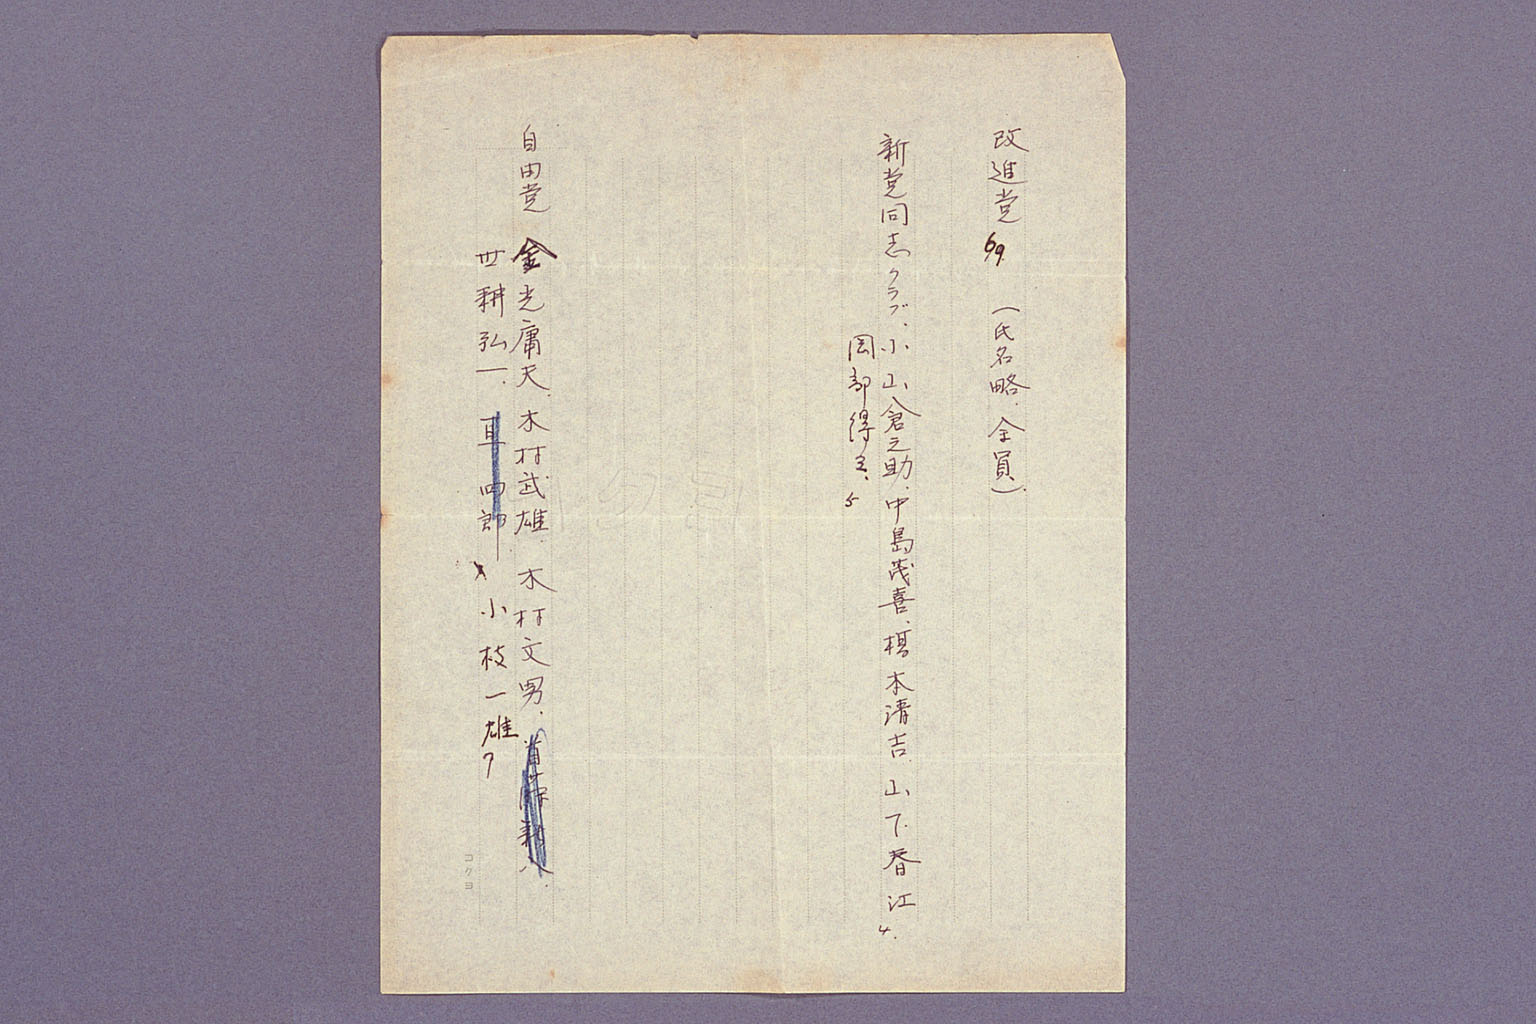 改進党 69 (氏名略、全員)
新党同志クラブ、小山倉之助、中島茂喜、橋本清吉、山下春江 4.
岡部得三、5
自由党 金光庸夫、木村武雄、木村文男、首藤新八、
世耕弘一、 四郎、小枝一雄 7
コクヨ